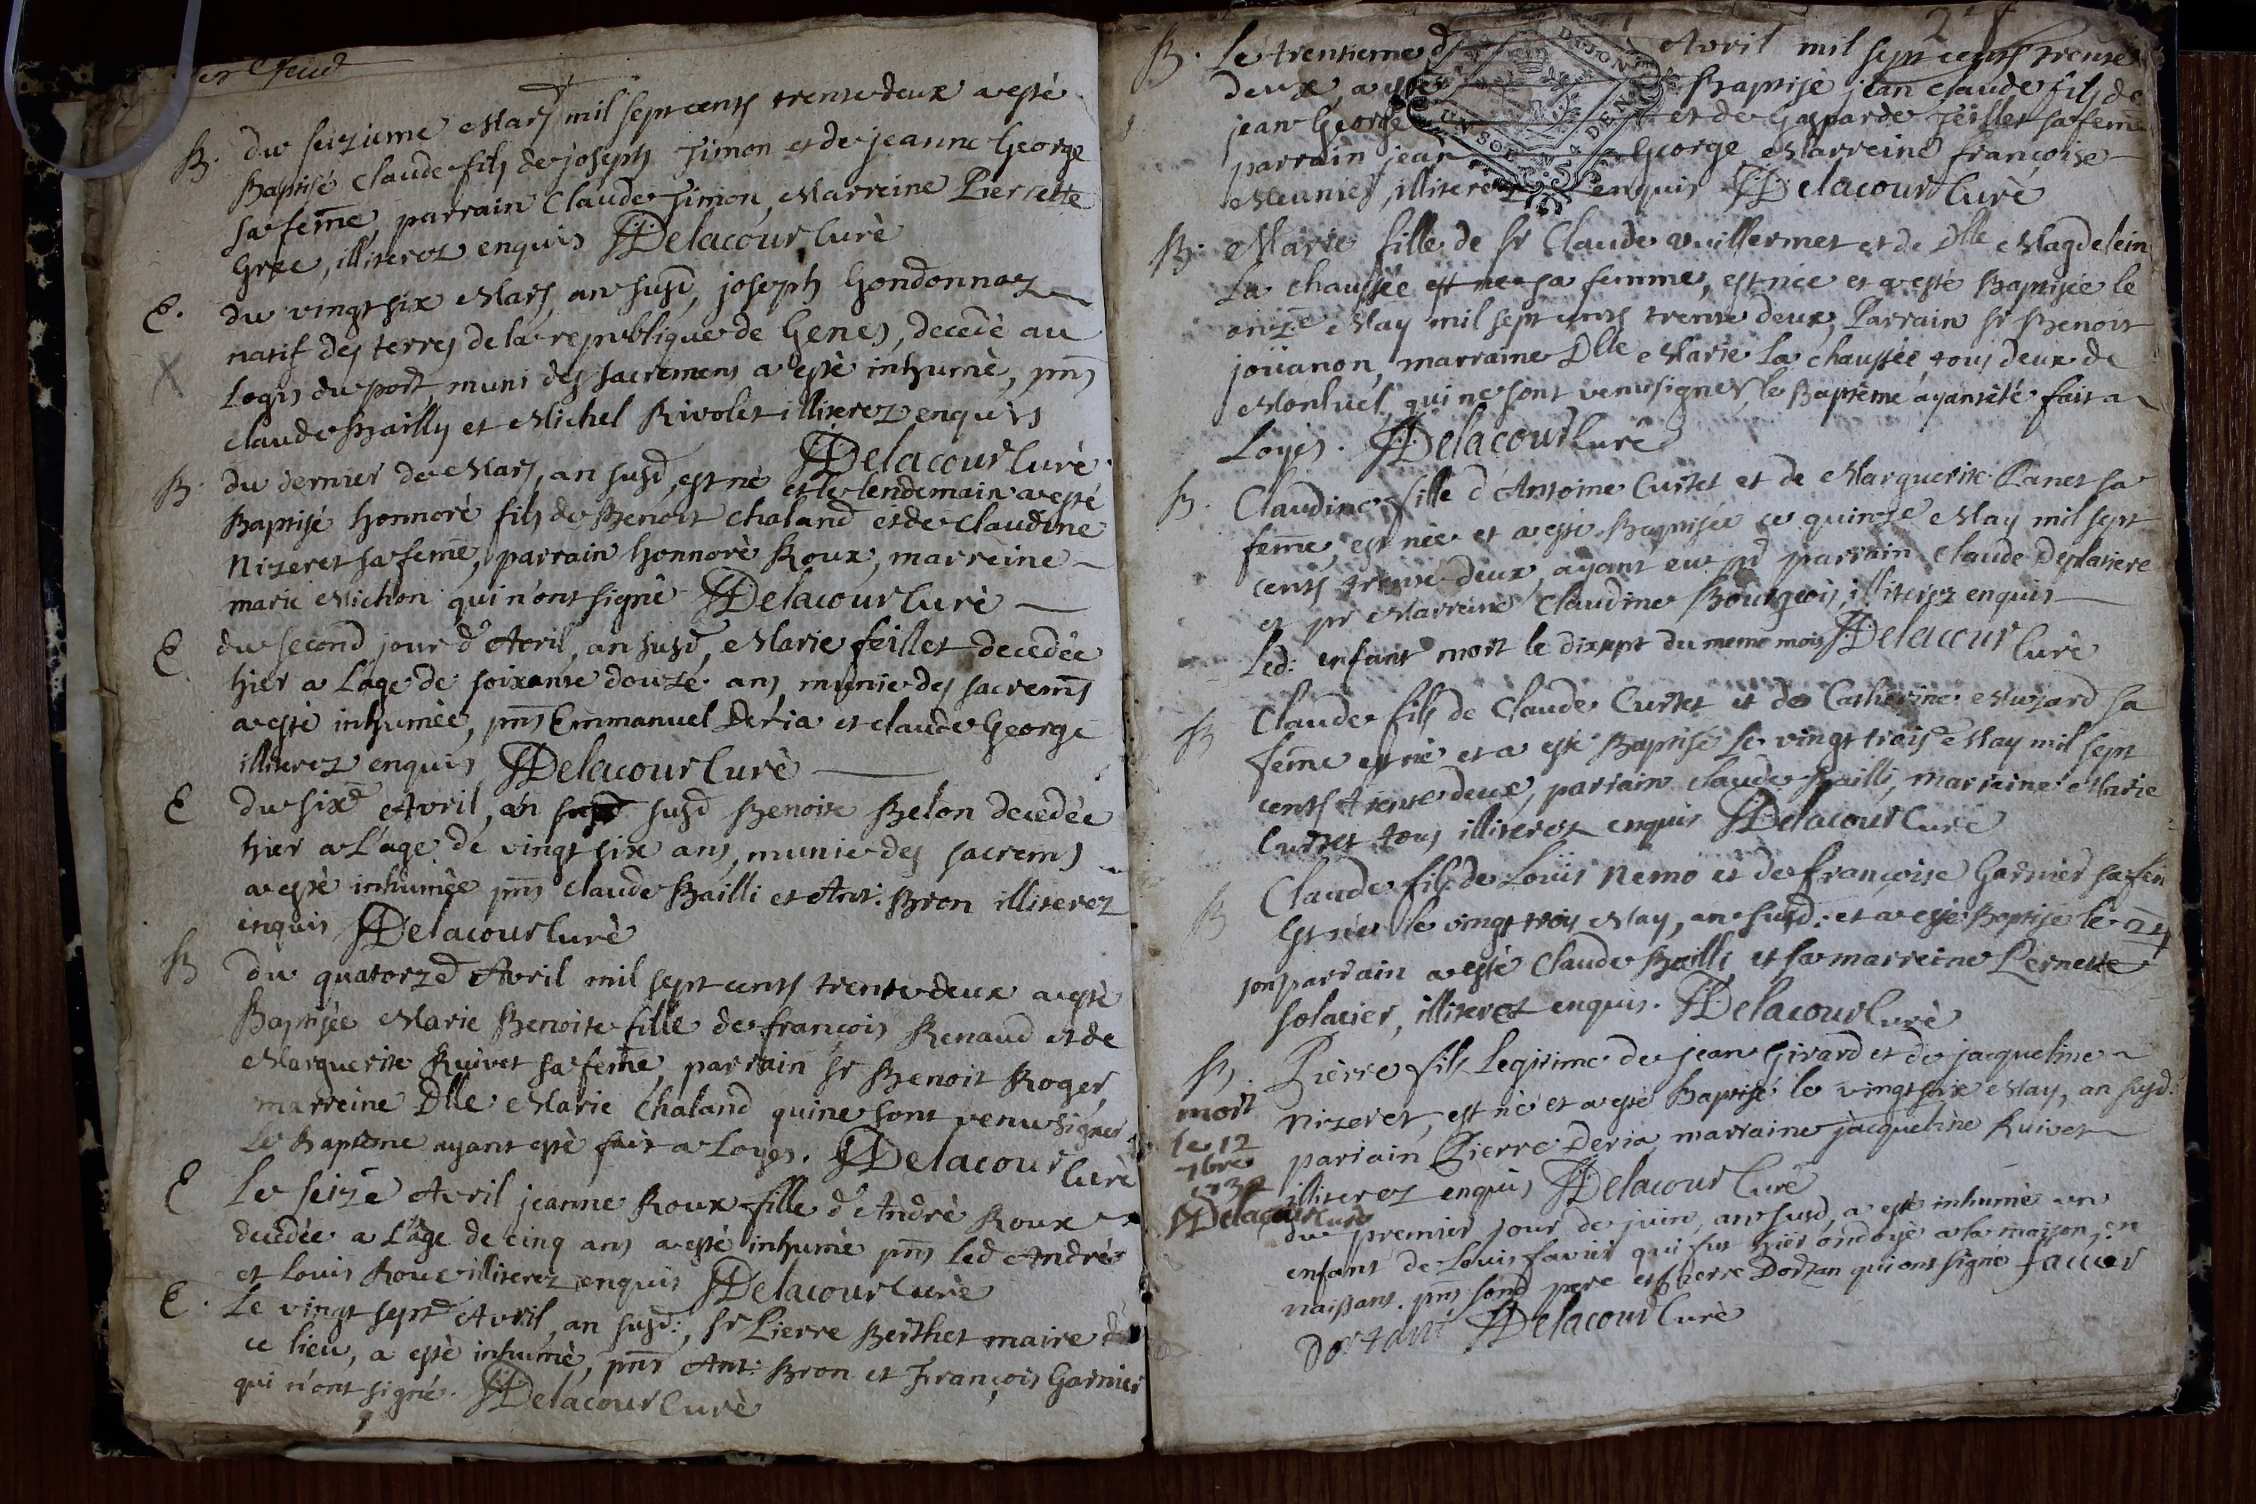 B. du seizieme Mars mil sept cents trente deux a esté
Baptisé Claude fils de joseph Timon et de jeanne George
sa feme, parrain Claude Timon, Marreine Pierrette
illiterez enquis Delacour Curè
E. du vingt six Mars, an susd, joseph Gondonnaz
natif des terres de la republique de Genes, decedè au
Logis du port, muni des sacremens a estè inhumè, pns
claude Bailly et Michel Rivolet illiterez enquis
Delacour Curè
B. du dernier de Mars, an susd, est nè et le lendemain a esté
Baptisé honnorè fils de Benoit chaland et de Claudine
Nizeret sa feme, parrain honnorè Roux, marreine
marie Michon qui n'ont signè Delacour Curè
E du second jour d'Avril, an susd, Marie feillet decedée
hier a L'age de soixante douze ans munie des sacrems
a estè inhumèe, pns Emmanuel Deria et claude George
illiterez enquis Delacour Curè
E du sixe Avril, an susd Benoite Belon decedée
hier a L'age de vingt six ans, munie des sacrems
a estè inhumèe pns claude Bailli et Ant: Bron illiterez
enquis Delacour Curè
B du quatorze Avril mil sept cents trente deux a estè
Baptisée Marie Benoite fille de françois Renaud et de
Marguerite Ruivet sa feme, parrain Sr Benoit Roger,
marreine Dlle Marie Chaland qui ne sont venu signer
Le Baptême ayant estè fait a Loyes. Delacour Curè
E Le seize Avril jeanne Roux fille d'Andrè Roux
decedée a L'age de cinq ans a estè inhumè pns led André
et Louis Roux illiterez enquis Delacour Curè
E. Le vingt septe Avril, an susd:, Sr Pierre Berthet maire de
ce lieu, a estè inhumè, pns Ant: Bron et François Garnier
qui n'ont signé. Delacour Curè
B. Le trentieme Avril mil sept cents trente
deux a esté Baptisè jean claude fils de
jean George et de Gasparde feillet sa feme
parrain jean George Marreine françoise
Meunier, illiterez enquis Delacour Curè
B. Marie fille de Sr Claude Vuillermet et de Dlle Magdelein
La chaussée sa femme, est née et a esté Baptisée le
onze May mil sept cents trente deux, Parrain Sr Benoit
joüanon, marraine Dlle Marie La chaussée, tous deux de
Monluel, qui ne sont venu signer, le Baptême ayant été fait a
Loyes. Delacour Curè
B. Claudine fille d'Antoine Curtet et de Marguerite Panet sa
feme, est née et a esté Baptisée ce quinze May mil sept
cents trente deux, ayant eut pr parrain claude Deplatiere
et pr Marreine Claudine Bourgeois, illiterez enquis
Led: enfant mort le dixsept du meme mois Delacour Curè
B Claude fils de Claude Curtet et de Catherine Muzard sa
feme est nè et a esté Baptisé Le vingt trois May mil sept
cents trente deux, parrain claude Bailli, marreine Marie
Curtet tous illiterez enquis Delacour Curè
B Claude fils de Loüis Nemo et de françoise Garnier sa fem
est né le vingt trois May, an susd: et a esté Baptisé le 24
son parrain a esté Claude Bailli et sa marreine Pernette
Solacier, illiterez enquis. Delacour Curè
B. Pierre fils Legitime de jean Girard et de jacqueline
Nizeret, est né et a esté Baptisé le vingt six May, an susd:
parrain Pierre Deria marraine jacqueline Ruivet
illiterez enquis Delacour Curè
mort
le 12
7bre
1732
Delacour Curè
du premier jour de juin, an susd, a esté inhumè un
enfant de Louis favier qui fut hier ondoyè a la maison, en
naissant. pns sond pere et pierre Dortan qui ont signè favier
Dortant Delacour Curè